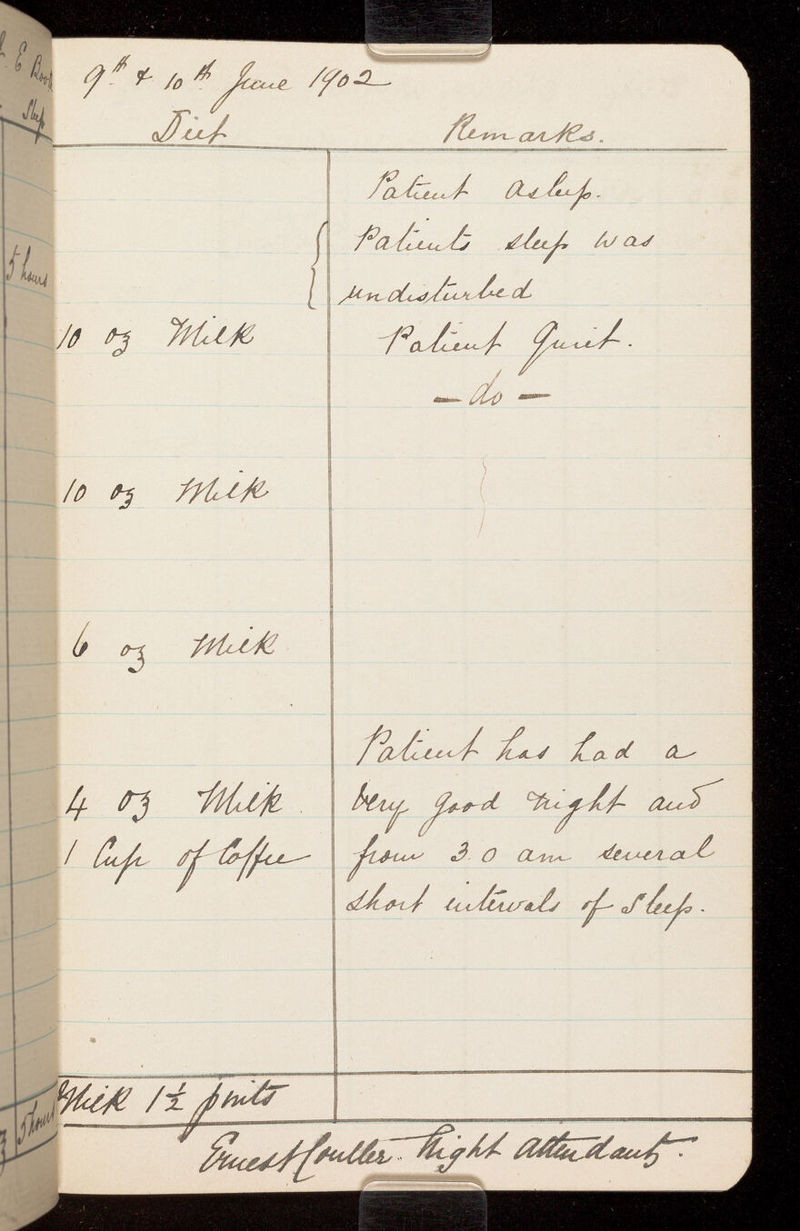 E Boo
Sleep
5 hours
5 hours
9th & 10th June 1902
Diet Remarks.
Patient asleep.
Patients sleep was
undisturbed
10 oz Milk Patient Quiet.
— do —
10 oz Milk
6 oz Milk
Patient has had a
4 oz Milk very good night and
1 Cup of Coffee from 3.0 am several
short intervals of sleep.
Milk 1½ pints
Ernest Coulter. Night Attendant.